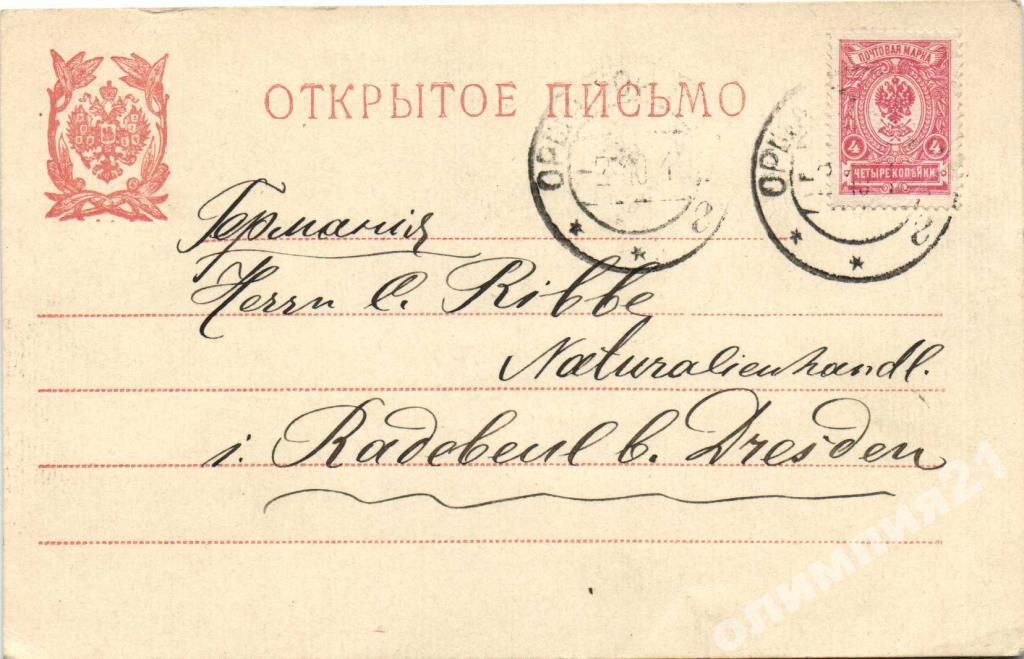 ОТКРЫТОЕ ПИСЬМО
ПОЧТОВАЯ МАРКА
4 4
ЧЕТЫРЕ КОПѢЙКИ
Германія
Herrn C. Ribbe
Naturalienhandl.
i. Radebeul b. Dresden
олимпия21